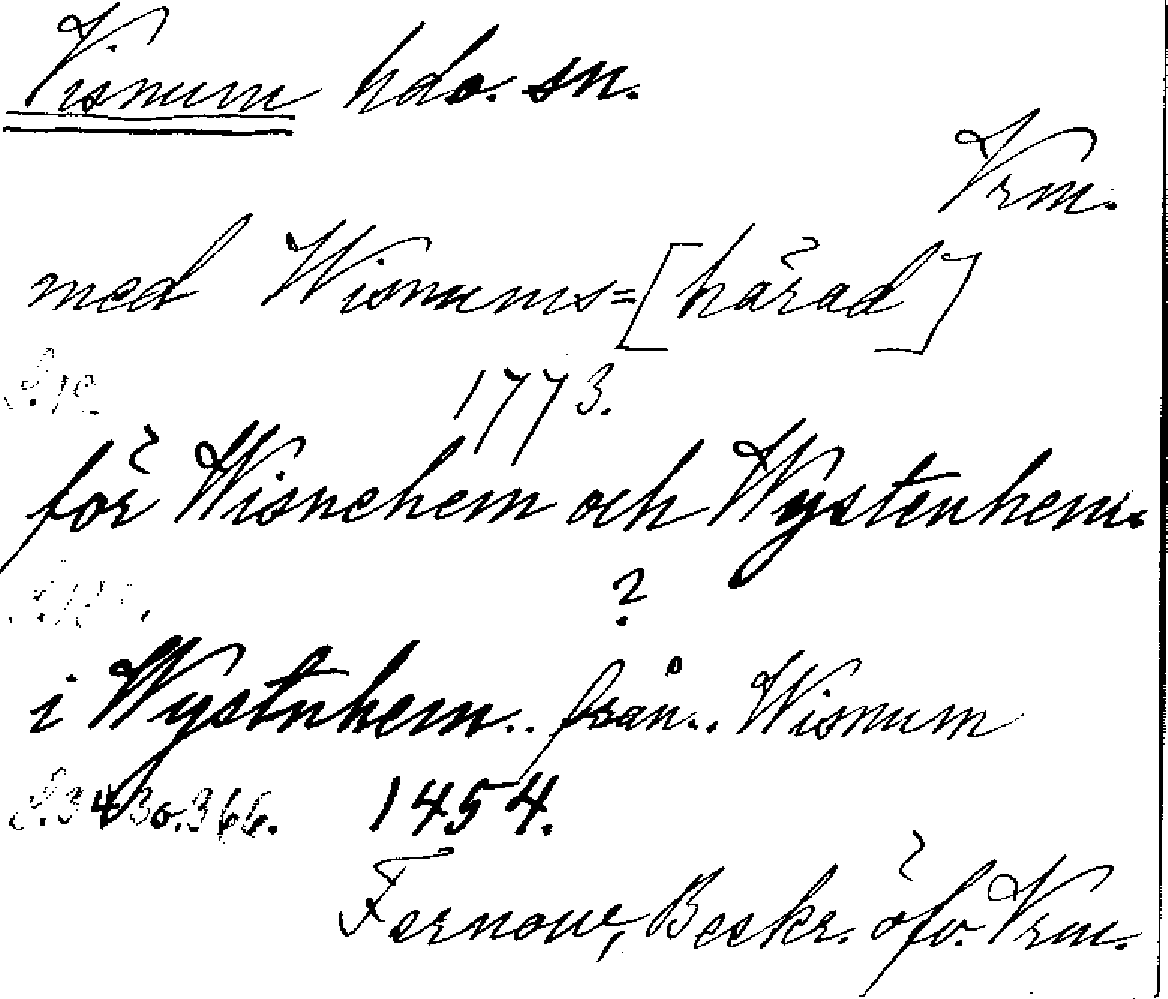 Visnum hdo. sn.
Vrm.
med Wisnums=[härad]
1773.
för Wisnehem och Wystenhem.
?
i Wystnhem.. från.. Wisnum
S. 343 o. 366. 1454.
Fernow, Beskr. öfv. Vrm.